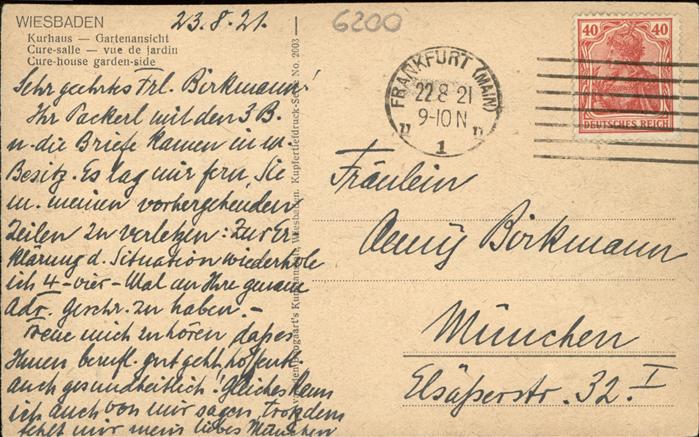 WIESBADEN
Kurhaus — Gartenansicht
Cure-salle — vue de jardin
Cure-house garden-side
23.8.21.
6200
Sehr geehrtes Frl. Birkmann!
Ihr Packerl mit den 3 B.
u. die Briefe kamen in m.
Besitz. Es lag mir fern, Sie
m. meinen vorhergehenden
Zeilen zu verletzen: Zur Er-
klärung d. Situation wiederhole
ich 4-vier-Mal an Ihre genaue
Adr. geschr. zu haben. —
Freue mich zu hören, daß es
Ihnen berufl. gut geht, hoffentl.
auch gesundheitlich! Gleiches kann
ich auch von mir sagen, trotzdem
fehlt mir mein liebes München
Kupfertiefdruck-Serie No. 2003 —
Wiesbaden.
FRANKFURT (MAIN)
22.8.21
9-10 N
1
40 40
DEUTSCHES REICH
Fräulein
Birkmann
München
Elsäßerstr. 32. I